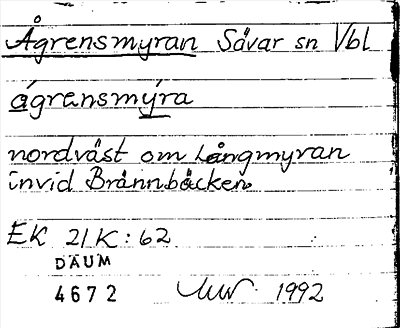 Ågrensmyran Sävar sn Vbl
ágrensmýra
nordväst om Långmyran
invid Brännbäcken
EK 21K:62
DAUM
4672 1992